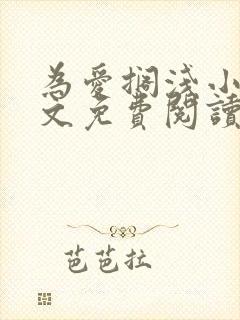 為愛擱淺小
文免費閱讀
芭芭拉